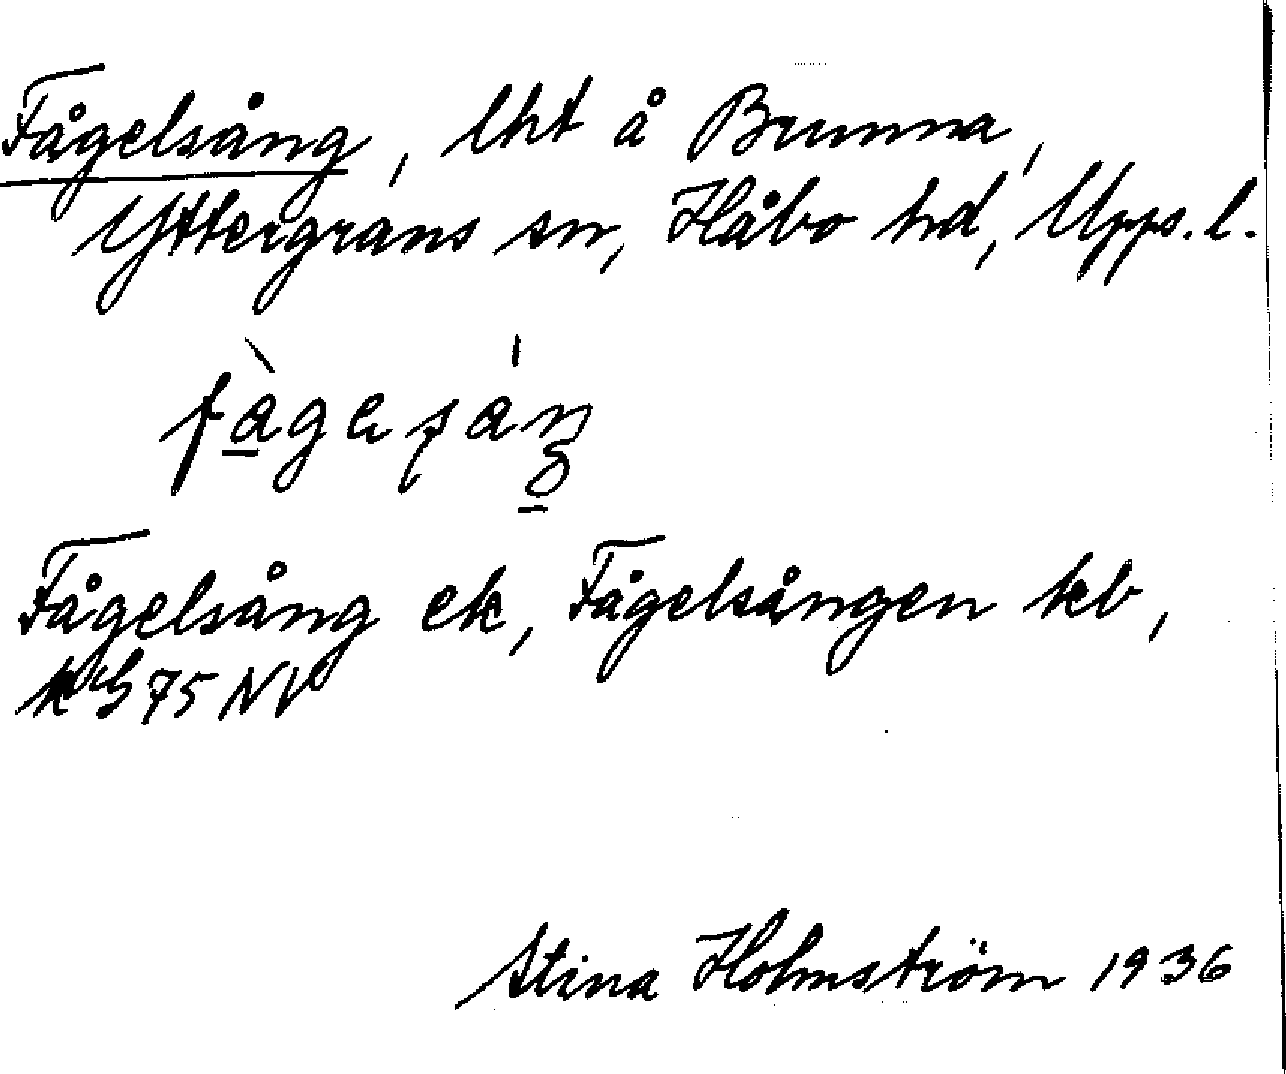 Fågelsång, lht å Brunna,
Yttergrans sn, Håbo hd, Upps. l.
Fågelsång ek, Fågelsången kb,
75 NV
Stina Holmström 1936